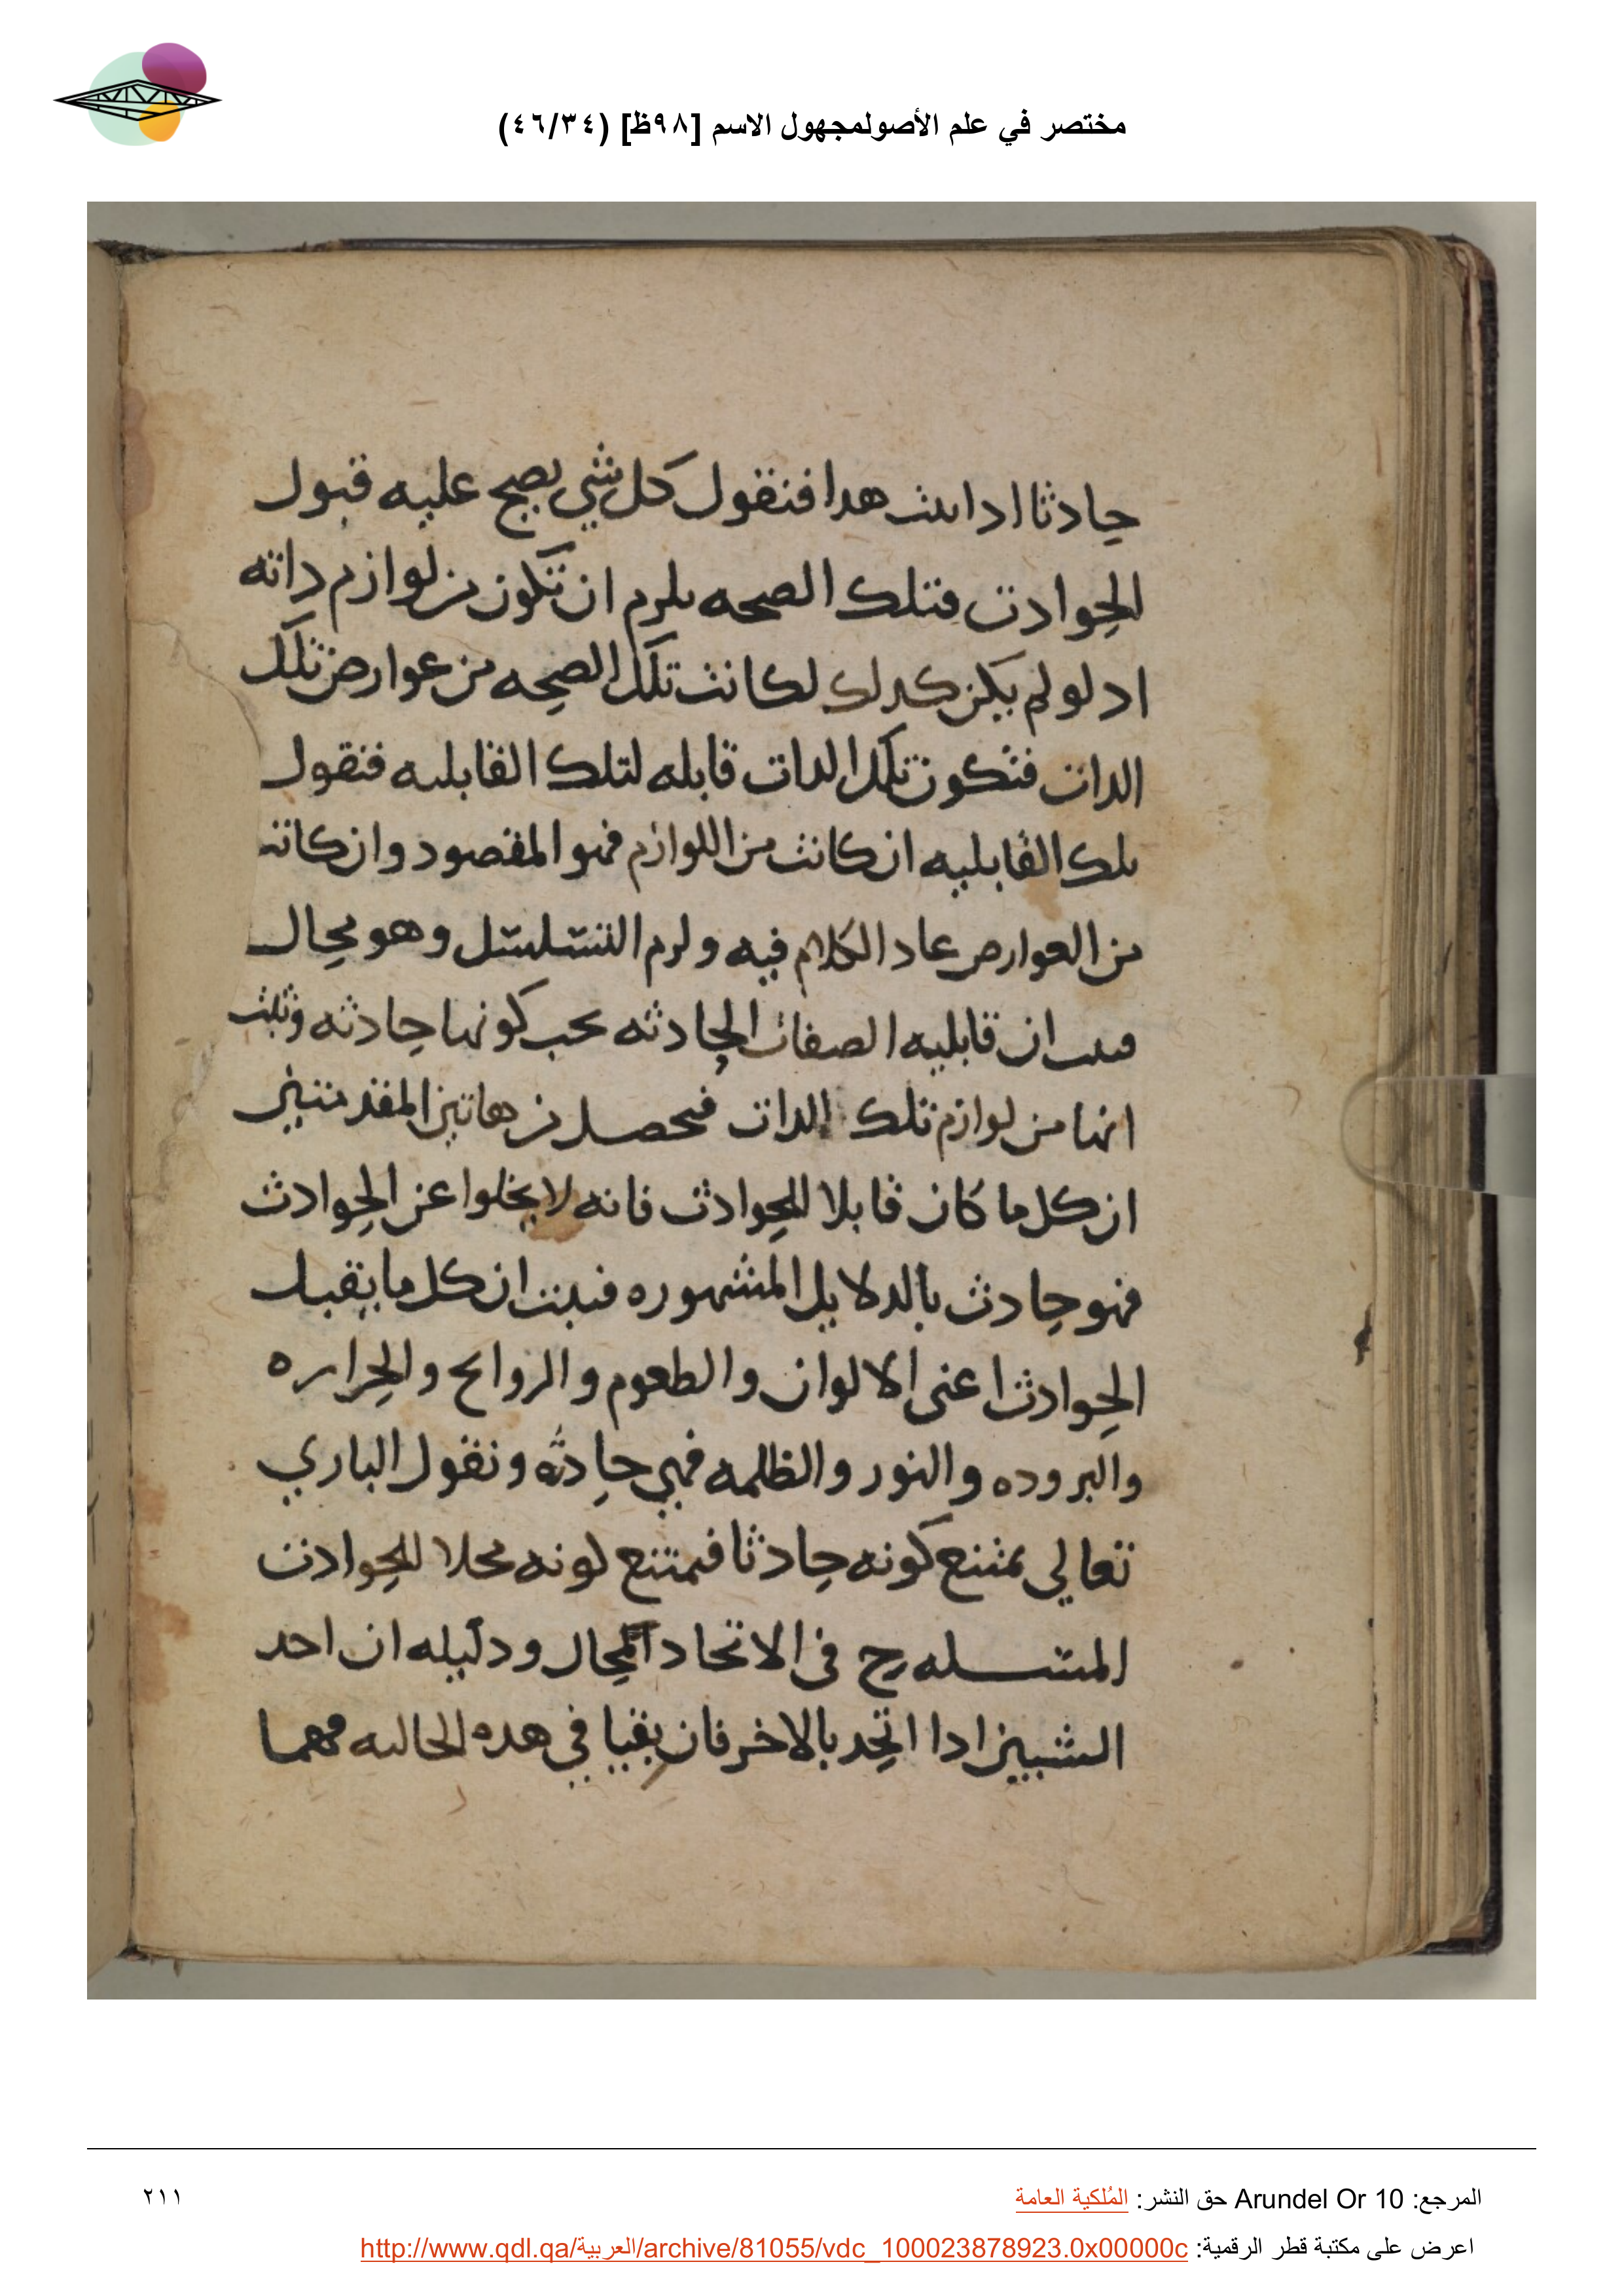 مختصر في علم الأصولمجهول الاسم [٩٨ظ] (٤٦/٣٤)
حادثا ادا ثبت هدا فنقول كل شي يصح عليه قبول
الحوادث فتلك الصحه يلزم ان تكون من لوازم داته
اد لو لم يكن كدلك لكانت تلك الصحه من عوارض تلك
الدات فتكون تلك الدات قابله لتلك القابليه فنقول
تلك القابليه ان كانت من اللوازم فهو المقصود وان كانت
من العوارض عاد الكلام فيه ولزم التسلسل وهو محال
فثبت ان قابليه الصفات الحادثه يجب كونها حادثه وثبت
انها من لوازم تلك الدات فيحصل من هاتين المقدمتين
ان كل ما كان قابلا للحوادث فانه لا يخلوا عن الحوادث
فهو حادث بالدلايل المشهوره فثبت ان كل ما يقبل
الحوادث اعنى الالوان والطعوم والروايح والحراره
والبروده والنور والظلمه فهي حادثه ونقول الباري
تعالى يمتنع كونه حادثا فيمتنع كونه محلا للحوادث
المسله ح فى الاتحاد المحال ودليله ان احد
الشيين ادا اتحد بالاخر فان بقيا في هده الحاله فهما
المرجع: Arundel Or 10 حق النشر: المُلكية العامة
٢١١
اعرض على مكتبة قطر الرقمية: http://www.qdl.qa/العربية/archive/81055/vdc_100023878923.0x00000c